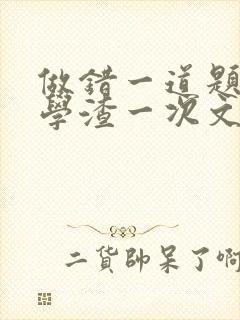 做錯一道題
學渣一次文
二貨帥呆了啊